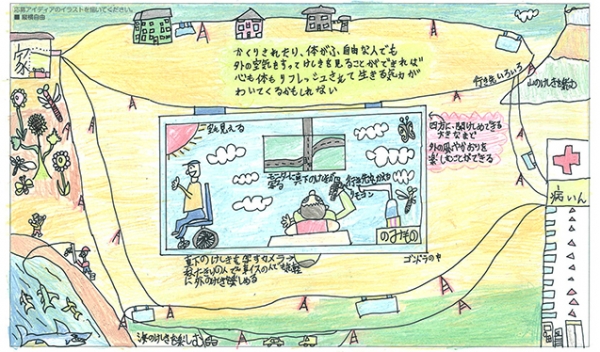 応募アイディアのイラストを描いてください。
■ 縦横自由
家
かくりされたり、体がふ自由な人でも
外の空気をすってけしきを見ることができれば
心も体もリフレッシュされて生きる気力が
わいてくるかもしれない
行き先いろいろ
山のけしきを楽しむ
空も見える
四方に開けしめできる
大きなまど
外の風やかおりを
楽しむことができる
リモコン
のみもの
病いん
ゴンドラの中
真下のけしきを写すカメラ→
でも
に外のけしきを楽しめる
海のけしきを楽しむ